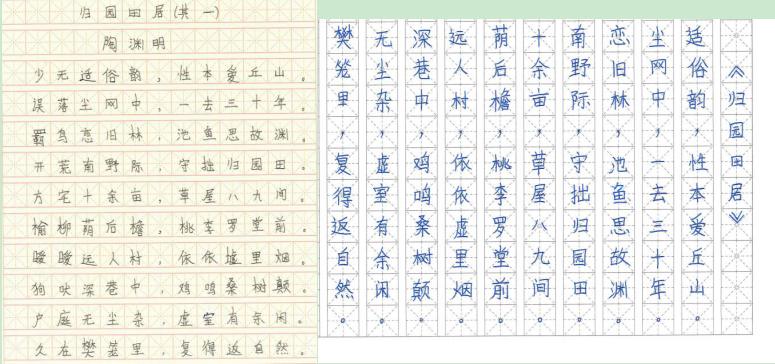 归园田居(其一)
陶渊明
少无适俗韵，性本爱丘山。
误落尘网中，一去三十年。
羁鸟恋旧林，池鱼思故渊。
开荒南野际，守拙归园田。
方宅十余亩，草屋八九间。
榆柳荫后檐，桃李罗堂前。
暧暧远人村，依依墟里烟。
狗吠深巷中，鸡鸣桑树颠。
户庭无尘杂，虚室有余闲。
久在樊笼里，复得返自然。
《归园田居》
适俗韵，性本爱丘山。
尘网中，一去三十年。
恋旧林，池鱼思故渊。
南野际，守拙归园田。
十余亩，草屋八九间。
荫后檐，桃李罗堂前。
远人村，依依虚里烟。
深巷中，鸡鸣桑树颠。
无尘杂，虚室有余闲。
樊笼里，复得返自然。